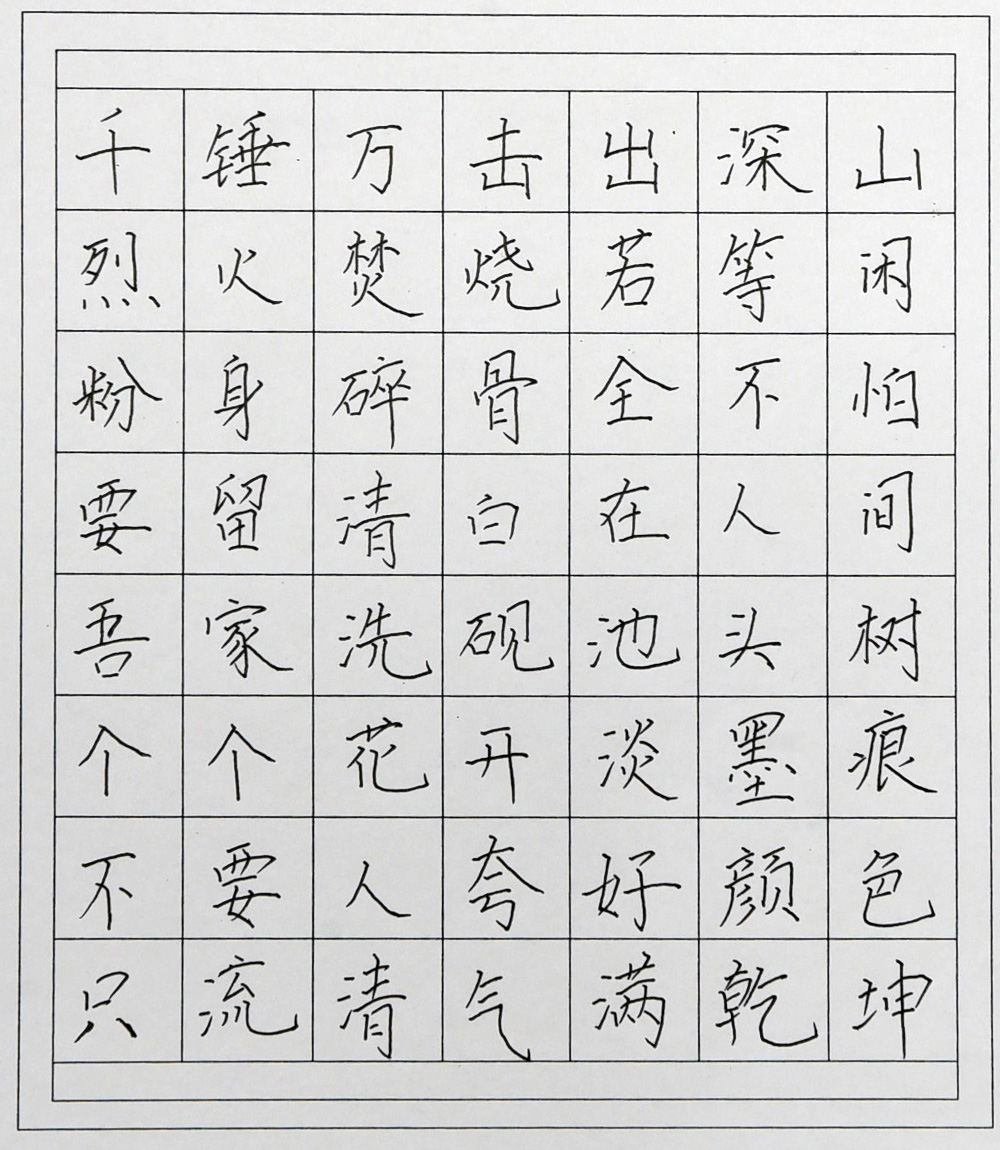 千锤万击出深山
烈火焚烧若等闲
粉身碎骨全不怕
要留清白在人间
吾家洗砚池头树
个个花开淡墨痕
不要人夸好颜色
只流清气满乾坤